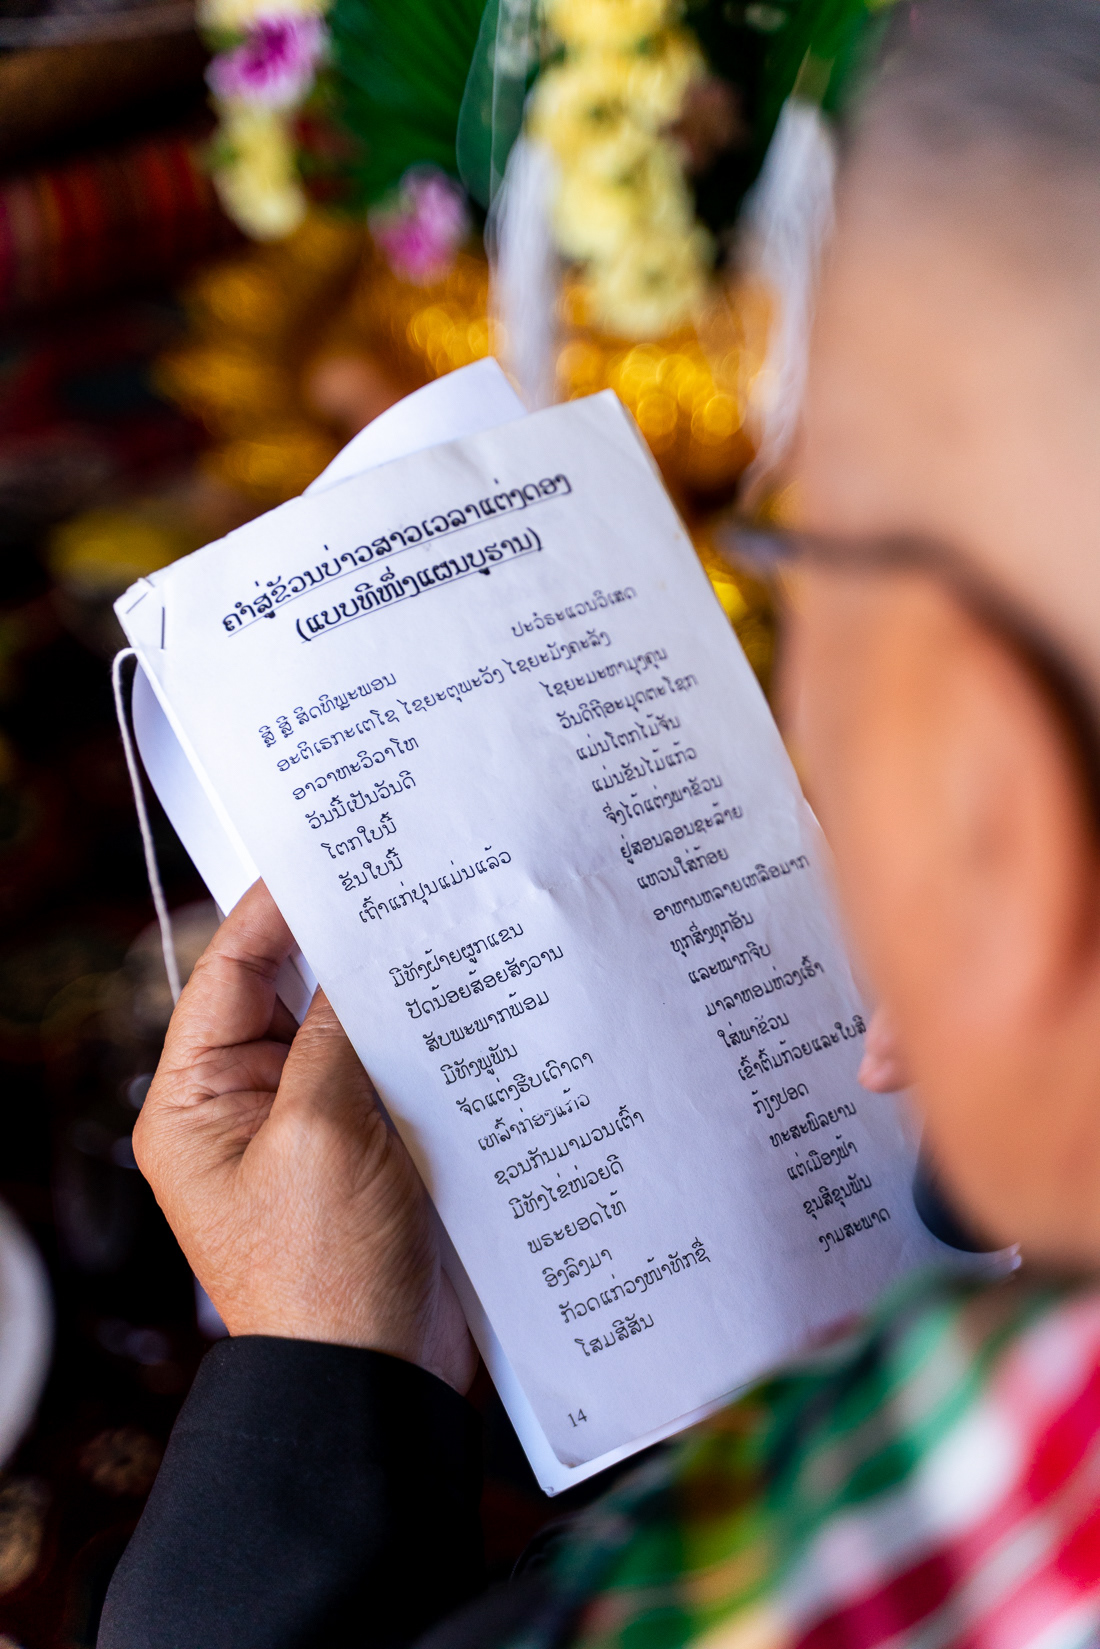 ຄຳສູ່ຂັວນບ່າວສາວເວລາແຕ່ງດອງ
(ແບບທີໜຶ່ງແຜນບູຮານ)
ສຼີ ສຼີ ສິດທິພຼະພອນ ປະວໍຣະແວນວິເສດ
ອະຕິເຣກະເຕໂຊ ໄຊຍະຕຸພະວັງ ໄຊຍະມັງຄະລັງ
ອາວາຫະວິວາໂຫ ໄຊຍະມະຫາມຸງຄຸນ
ວັນນີ້ເປັນວັນດີ ວັນດິຖີອະມຸດຕະໂຊກ
ໂຕກໃບນີ້ ແມ່ນໂຕກໄມ້ຈັນ
ຂັນໃບນີ້ ແມ່ນຂັນໄມ້ແກ້ວ
ເຖົ້າແກ່ປຸນແມ່ນແລ້ວ ຈິ່ງໄດ້ແຕ່ງພາຂ້ວນ
ຢູ່ສອນລອນຊະລ້າຍ
ມີທັງຝ້າຍຜູກແຂນ ແຫວນໃສ່ກ້ອຍ
ປັດນ້ອຍສ້ອຍສັງວານ ອາຫານຫລາຍເຫລືອມາກ
ສັບພະພາກພ້ອມ ທຸກສິ່ງທຸກອັນ
ມີທັງພູພັນ ແລະໝາກຈີບ
ຈັດແຕ່ງຮີບເດົາດາ ມາລາຫອມຫ່ວງເຮົ້າ
ເຫລົ້າກ່ອງແກ້ວ ໃສ່ພາຂ້ວນ
ຊວນກັນມາມວນເຕົ້າ ເຂົ້າຕົ້ມກ້ວຍແລະໃບສີ
ມີທັງໄຂ່ໜ່ວຍດີ ກ້ຽງປອດ
ພຣະຍອດໄທ້ ທະສະພົລຍານ
ອິງລິງມາ ແຕ່ເມືອງຟ້າ
ກັວດແກ່ວງໜ້າທັກຊື່ ຊຸນສີຊຸນພັນ
ໂສມສີສັນ ງາມສະພາດ
14